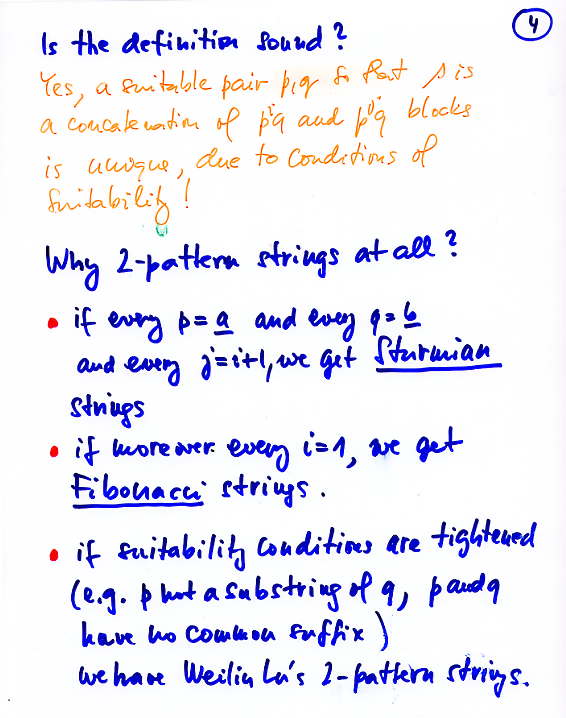 4
Is the definition sound?
Yes, a suitable pair p,q so that s is
a concatenation of pⁱq and pʲq blocks
is unique, due to conditions of
suitability!
Why 2-pattern strings at all?
• if every p=a and every q=b
and every j=i+1, we get Sturmian
strings
• if moreover every i=1, we get
Fibonacci strings.
• if suitability conditions are tightened
(e.g. p not a substring of q, p and q
have no common suffix)
we have Weilin Lu's 2-pattern strings.